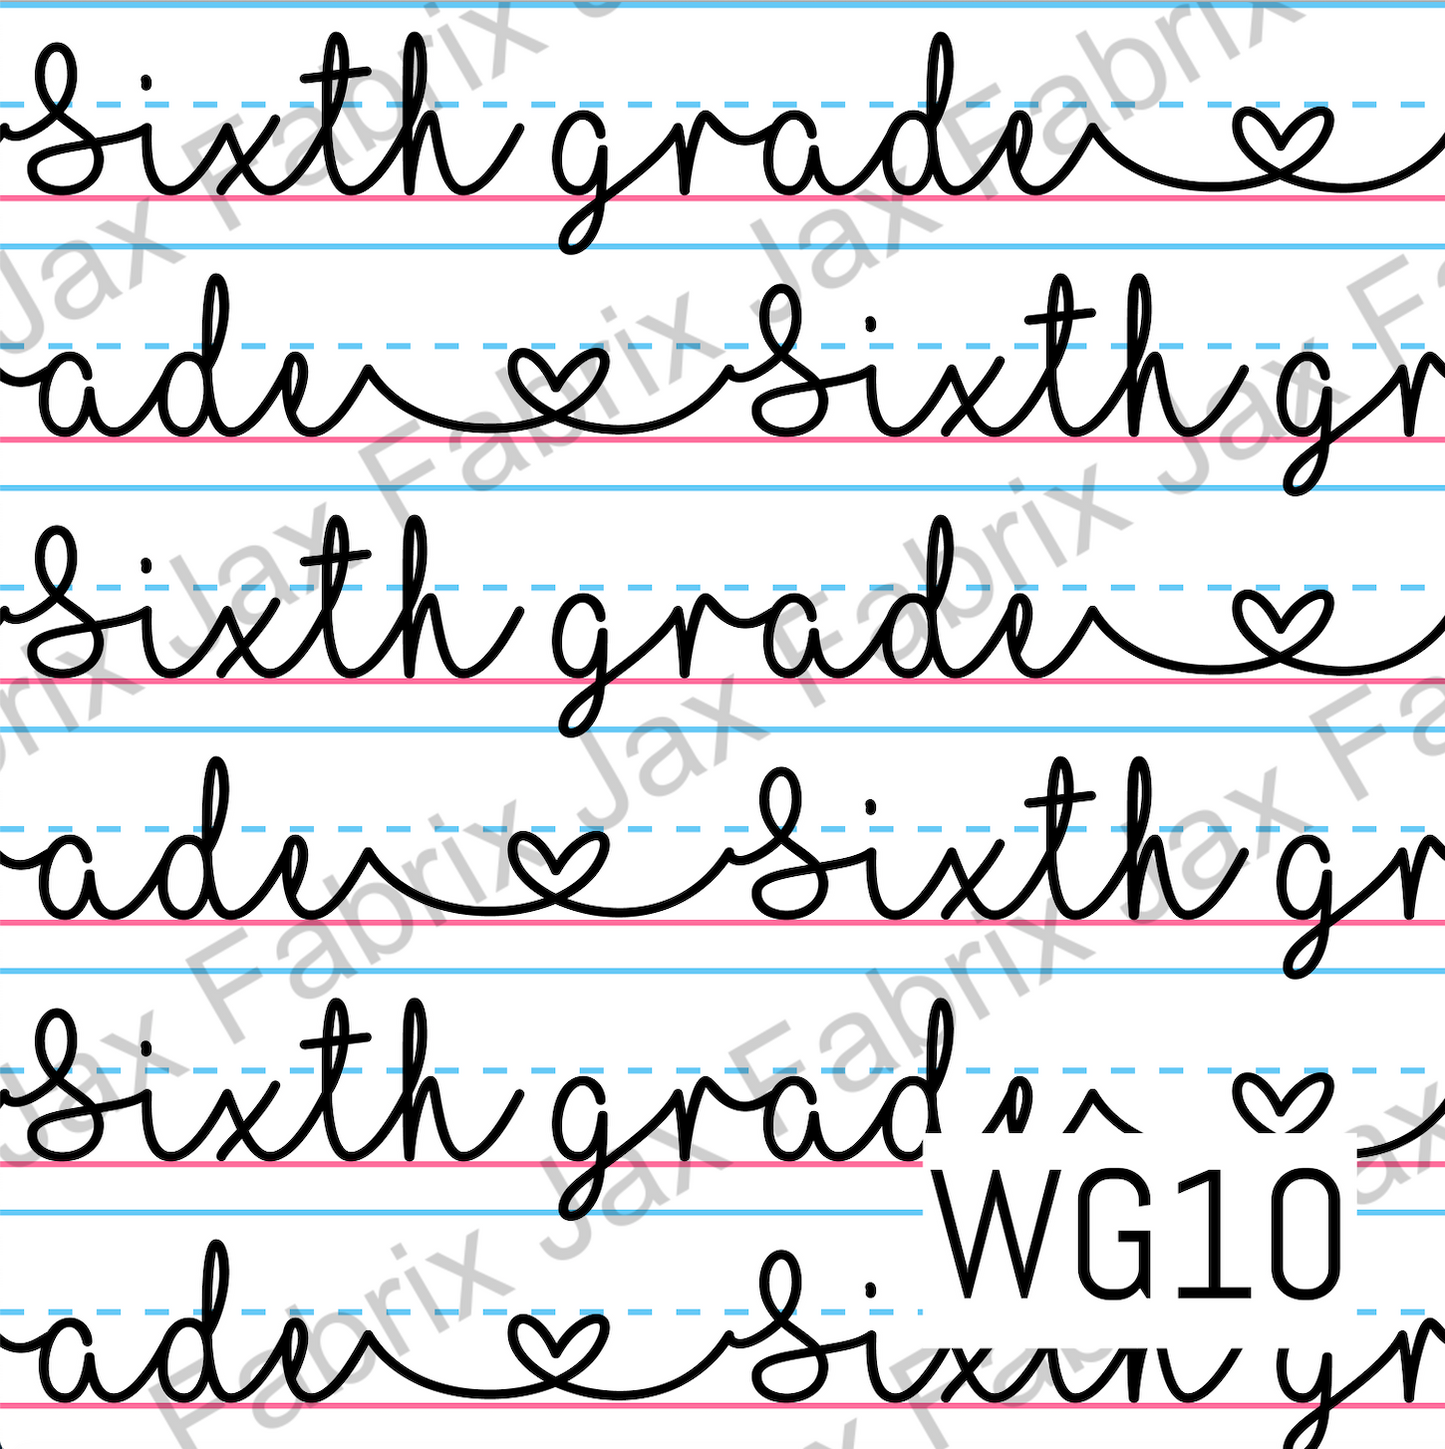 sixth grade
ade sixth gr
sixth grade
ade sixth gr
sixth grade
WG10
ade sixth gr
Jax Fabrix Jax Fabrix Jax Fabrix